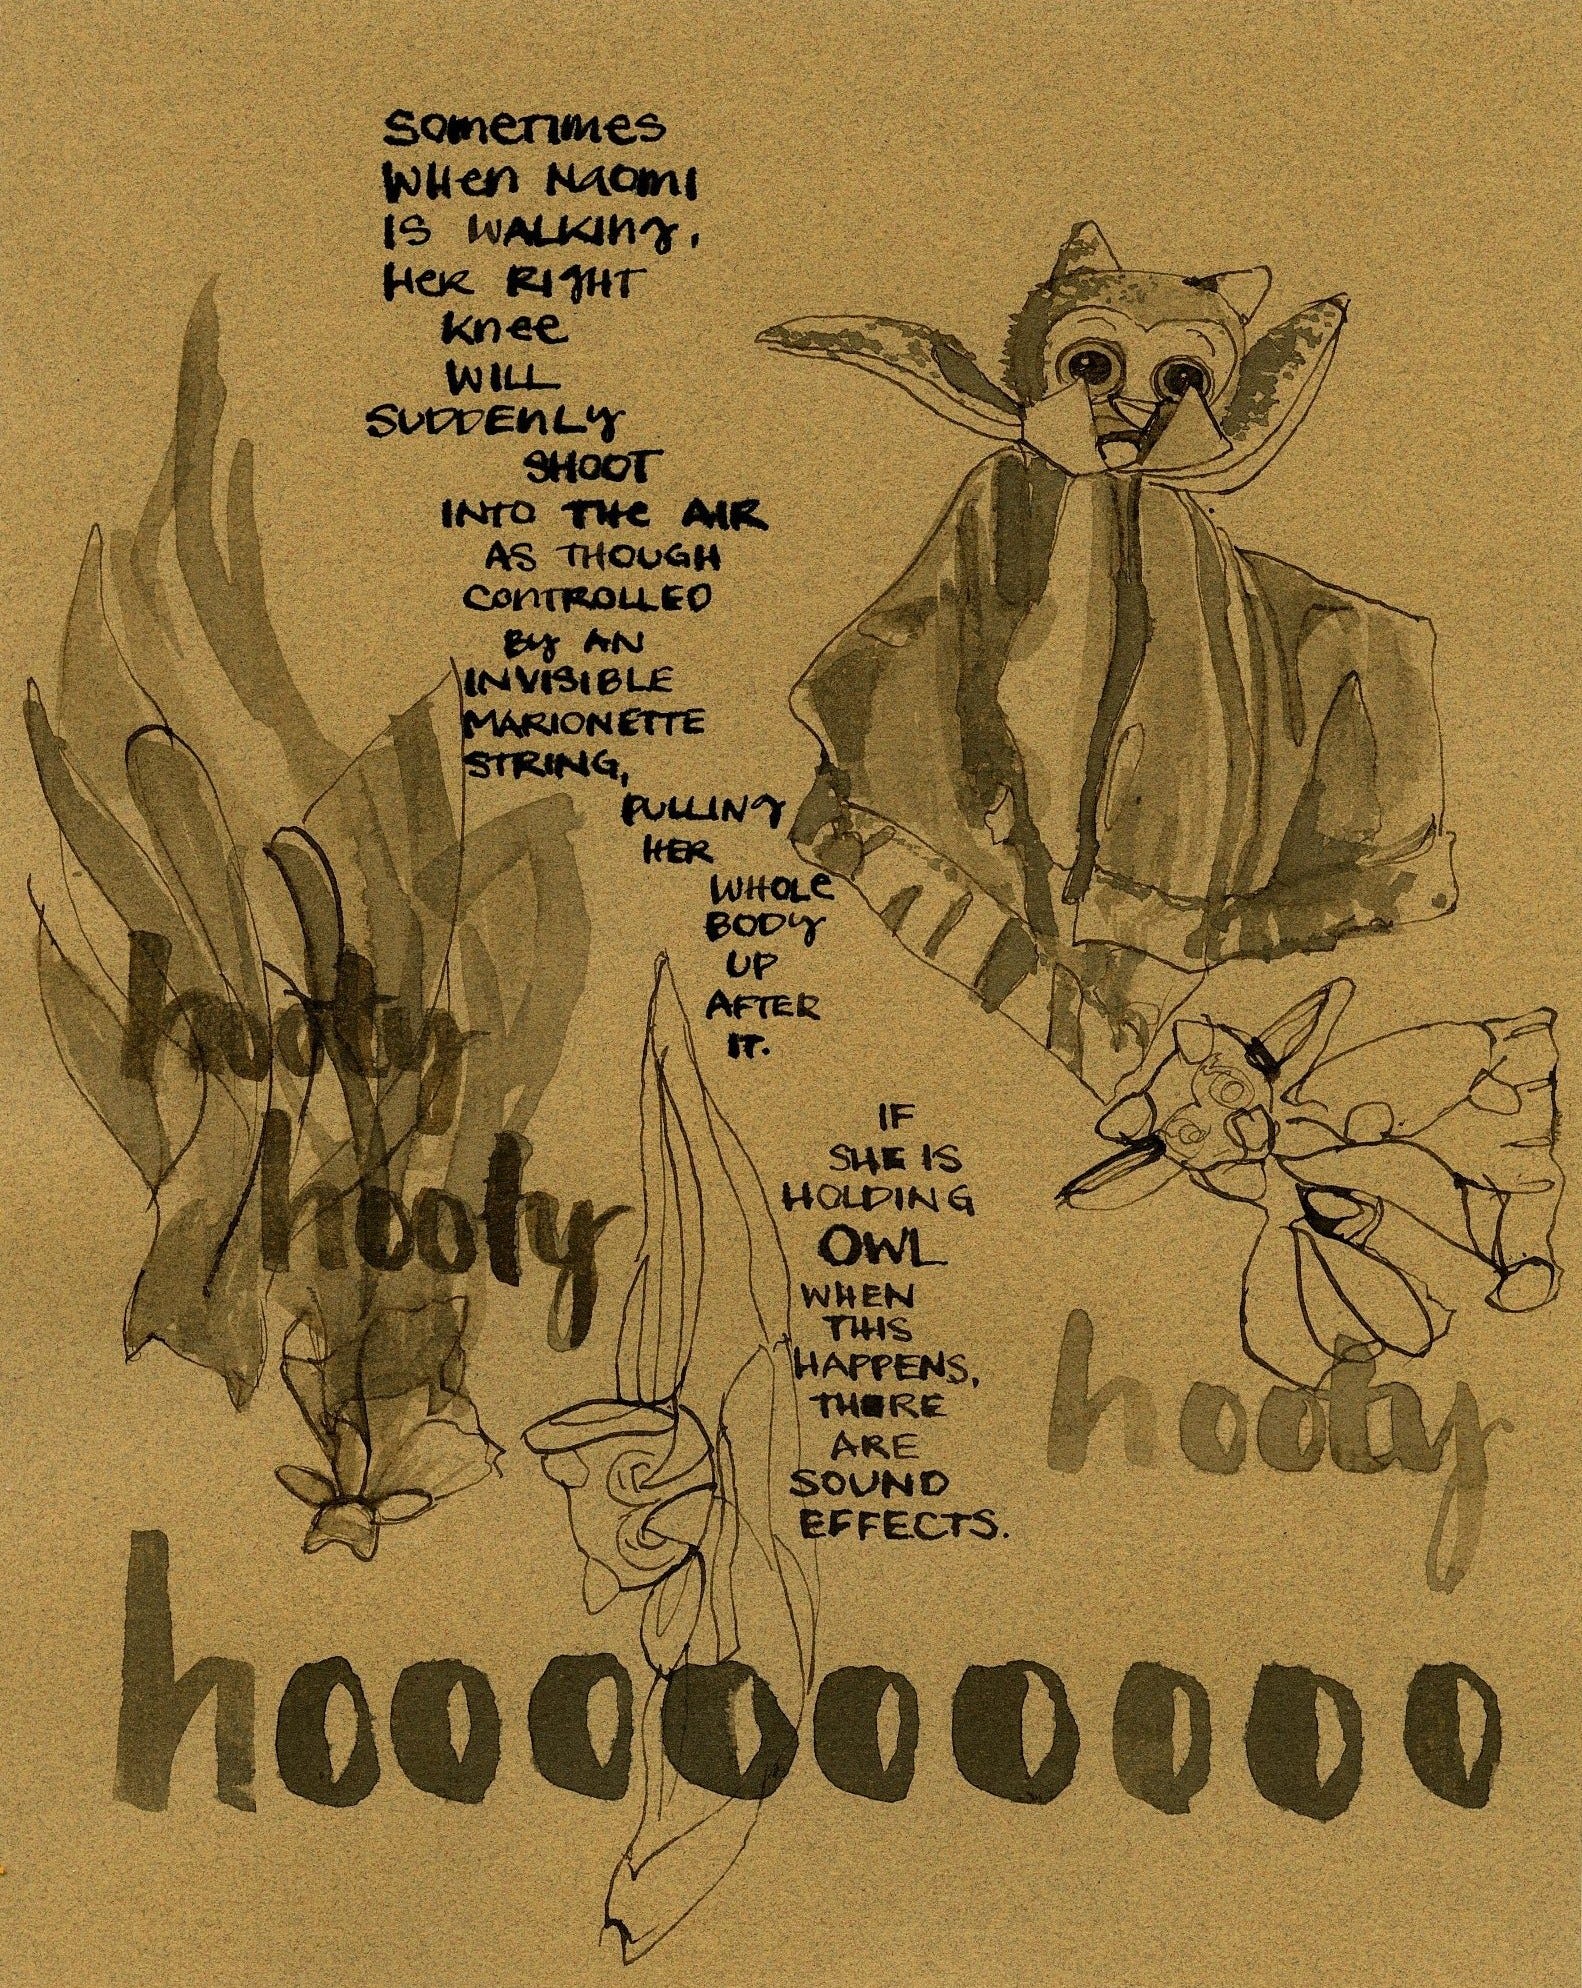 Sometimes
When Naomi
is walking,
Her Right
knee
will
suddenly
shoot
into the air
as though
controlled
by an
invisible
marionette
string,
pulling
her
whole
body
up
after
it.
If
she is
holding
OWL
when
this
happens,
there
are
sound
effects.
hooty
hooty
hooty
hooooooooo